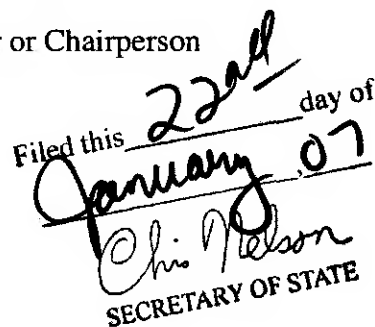 r or Chairperson
Filed this 22nd day of
January, 07
Chis Nelson
SECRETARY OF STATE